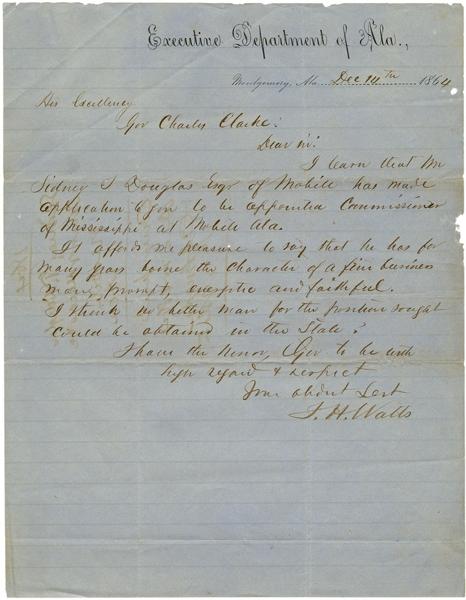 Executive Department of Ala.,
Montgomery, Ala. Dec 14th 1864
His Excellency
Gov Charles Clarke:
Dear Sir:
I learn that Mr
Sidney S Douglas Esqr of Mobile has made
application to you to be appointed Commissioner
of Mississippi at Mobile Ala.
It affords me pleasure to say that he has for
many years borne the character of a fine business
man, prompt, energetic and faithful.
I think no better man for the position sought
could be obtained in the State.
I have the honor, Gov. to be with
high regard & respect
Your obdnt Servt
T. H. Watts